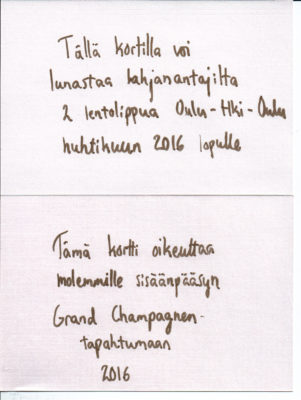 Tällä kortilla voi
lunastaa lahjanantajilta
2 lentolippua Oulu-Hki-Oulu
huhtikuun 2016 lopulle
Tämä kortti oikeuttaa
molemmille sisäänpääsyn
Grand Champagnen-
tapahtumaan
2016